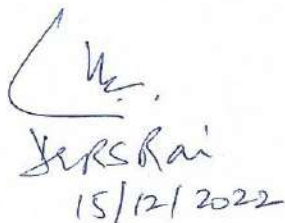 Dr RS Rai
15/12/2022